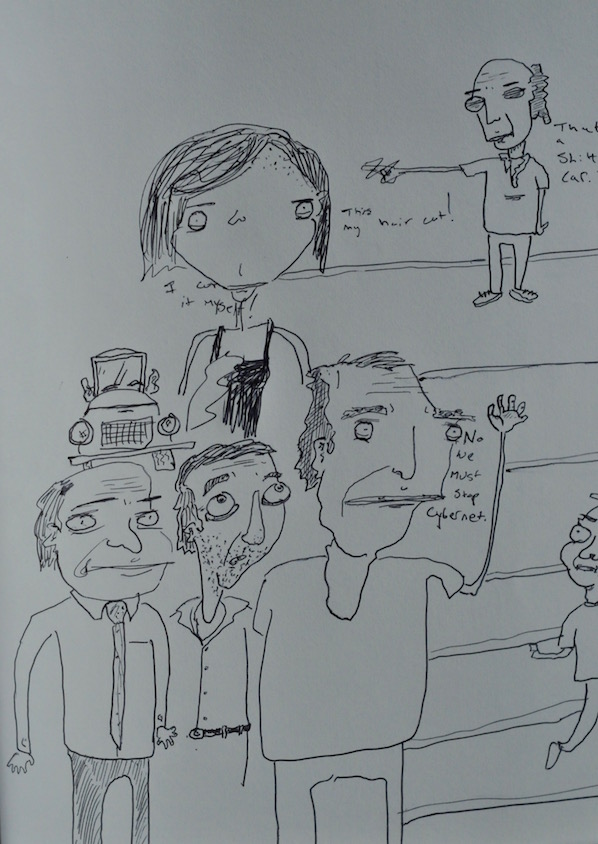 That
a
Shitt
car.
This
my hair cut!
I cut
it myself!
No
we
Must
Stop
Cybernet.